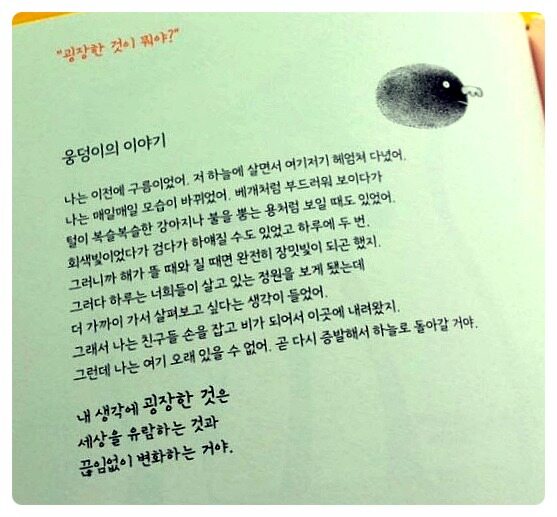 "굉장한 것이 뭐야?"
웅덩이의 이야기
나는 이전에 구름이었어. 저 하늘에 살면서 여기저기 헤엄쳐 다녔어.
나는 매일매일 모습이 바뀌었어. 베개처럼 부드러워 보이다가
털이 복슬복슬한 강아지나 불을 뿜는 용처럼 보일 때도 있었어.
회색빛이었다가 검다가 하얘질 수도 있었고 하루에 두 번.
그러니까 해가 뜰 때와 질 때면 완전히 장밋빛이 되곤 했지.
그러다 하루는 너희들이 살고 있는 정원을 보게 됐는데
더 가까이 가서 살펴보고 싶다는 생각이 들었어.
그래서 나는 친구들 손을 잡고 비가 되어서 이곳에 내려왔지.
그런데 나는 여기 오래 있을 수 없어. 곧 다시 증발해서 하늘로 돌아갈 거야.
내 생각에 굉장한 것은
세상을 유람하는 것과
끊임없이 변화하는 거야.